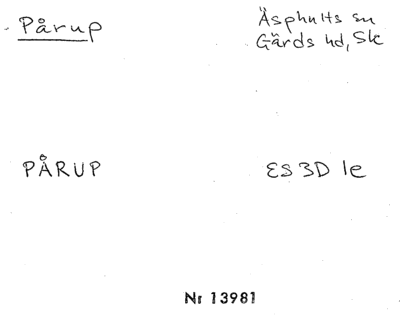 Pårup
Äsphults sn
Gärds hd, Sk
PÅRUP
ES 3D 1e
Nr 13981